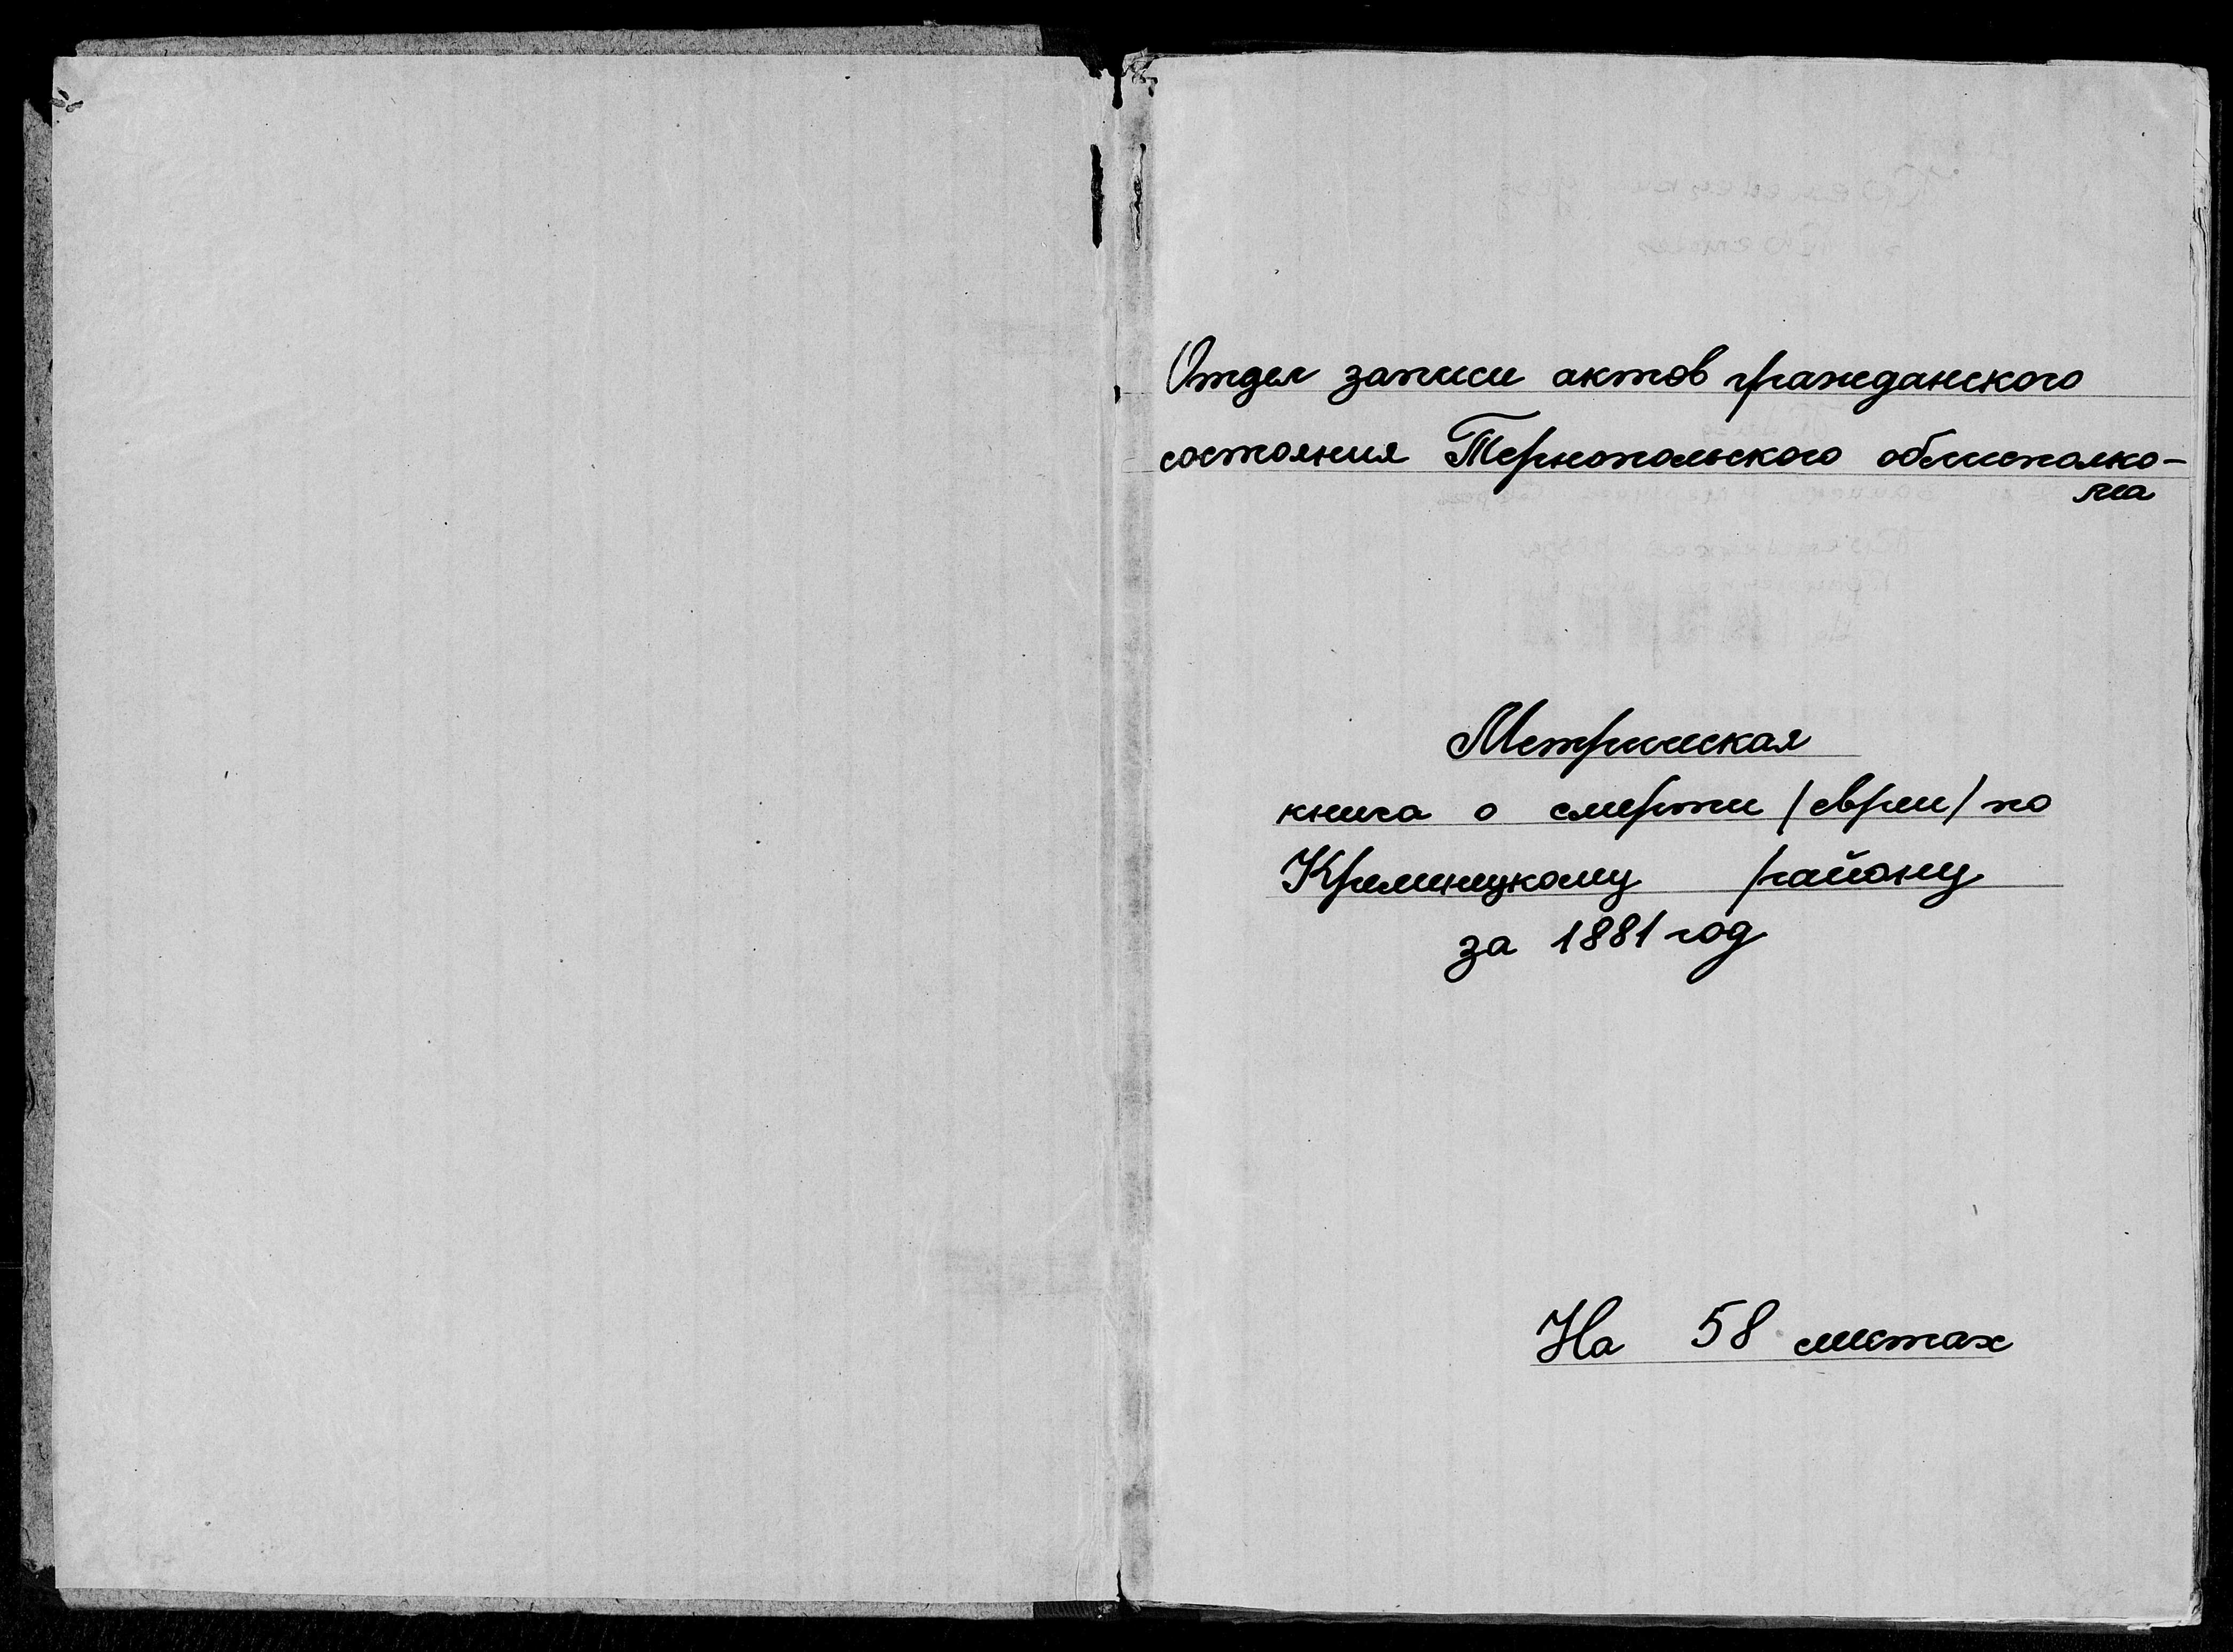 Отдел записи актов гражданского
состояния Тернопольского облисполко-
ма
Метрическая
книга о смерти /евреи/ по
Кременецкому району
за 1881 год
На 58 листах